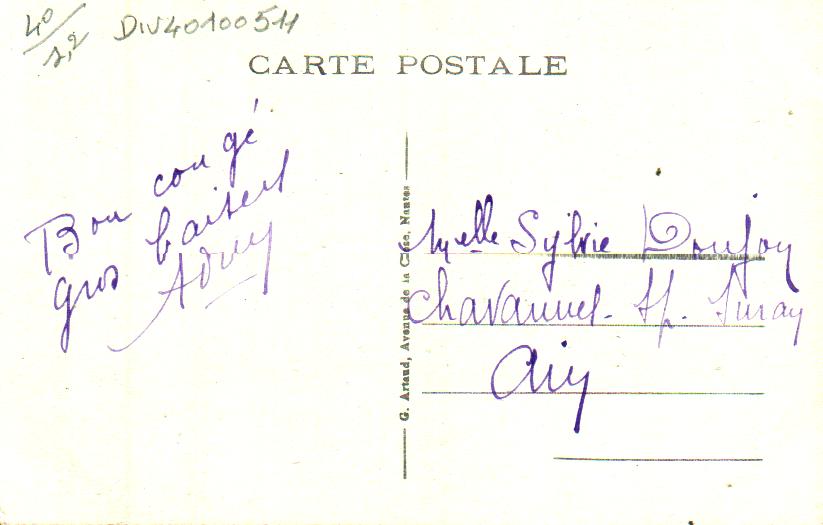 40/1,2 DIV40100511
CARTE POSTALE
Bon congé
gros baisers
G. Artaud, Avenue de la Close, Nantes
Melle Sylvie Doujon
Chavannes s/. Suran
Ain